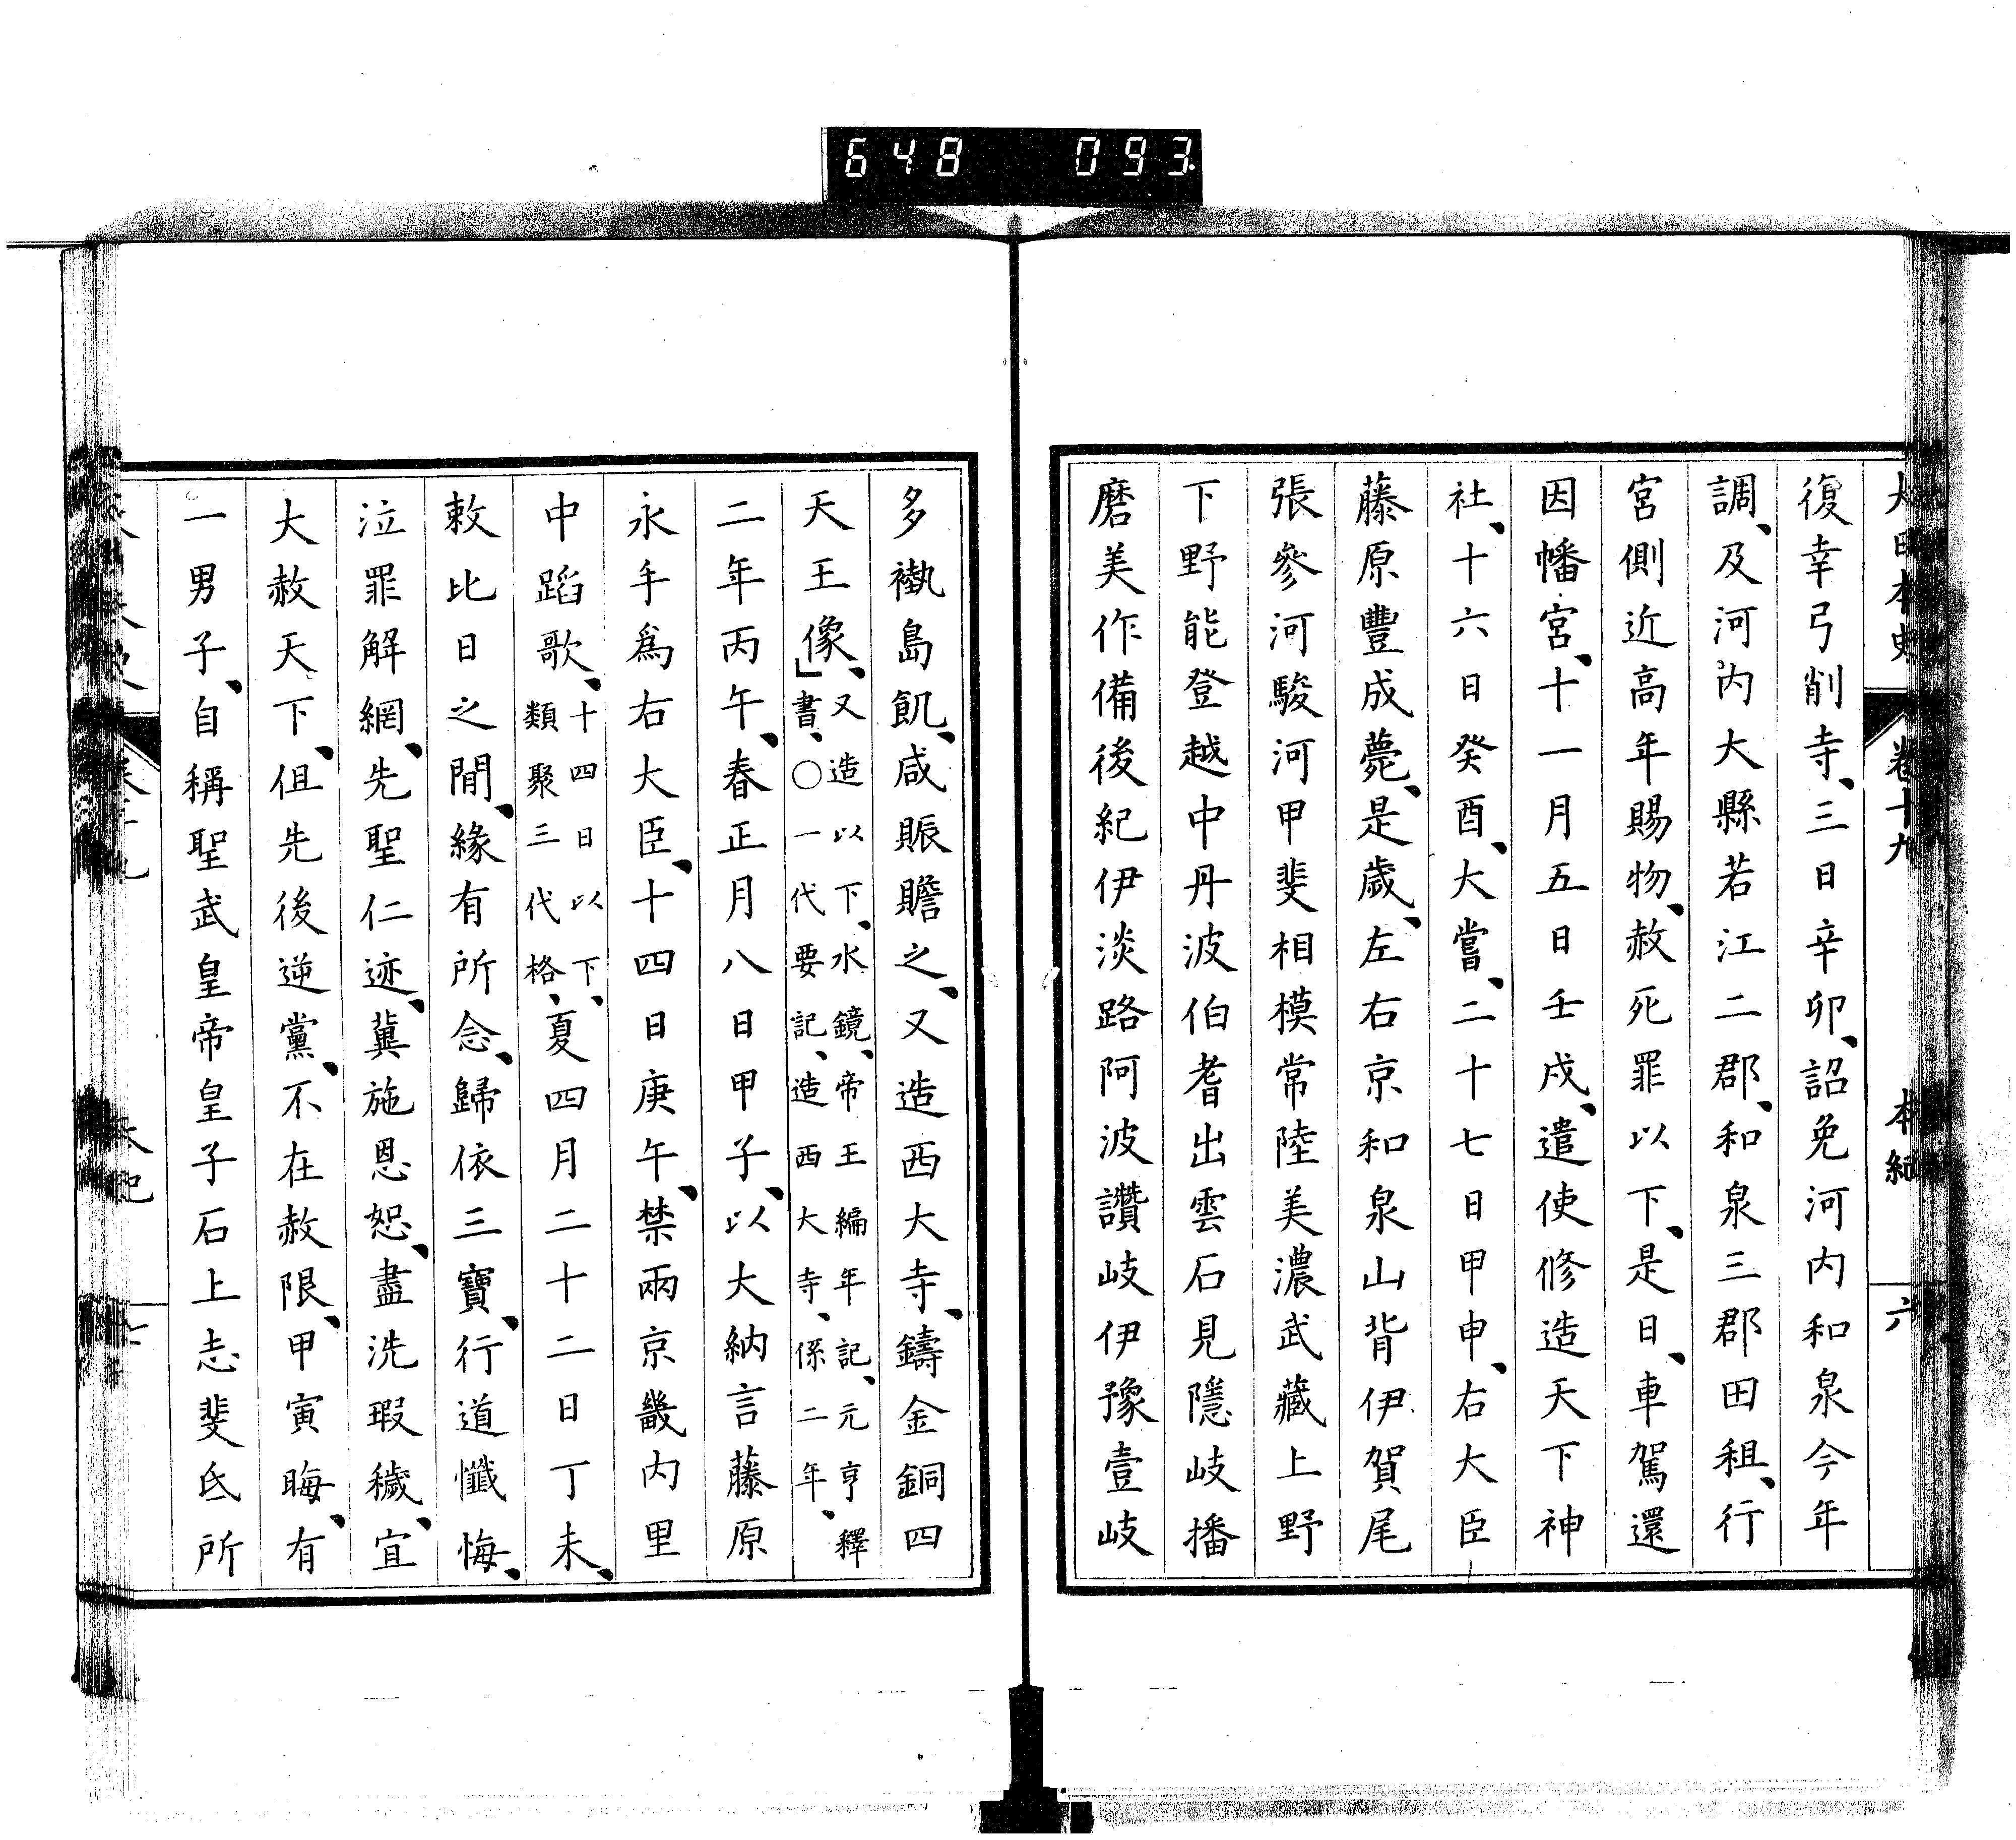 648 093
大日本史 卷十九 本紀 六
復幸弓削寺、三日辛卯、詔免河内和泉今年
調、及河内大縣若江二郡、和泉三郡田租、行
宮側近高年賜物、赦死罪以下、是日、車駕還
因幡宮、十一月五日壬戌、遣使修造天下神
社、十六日癸酉、大嘗、二十七日甲申、右大臣
藤原豐成薨、是歲、左右京和泉山背伊賀尾
張參河駿河甲斐相模常陸美濃武藏上野
下野能登越中丹波伯耆出雲石見隱岐播
磨美作備後紀伊淡路阿波讚岐伊豫壹岐
多褹島飢、咸賑贍之、又造西大寺、鑄金銅四
天王像、又造以下、水鏡、帝王編年記、元亨釋
書、○一代要記、造西大寺、係二年、
二年丙午、春正月八日甲子、以大納言藤原
永手爲右大臣、十四日庚午、禁兩京畿内里
中蹈歌、十四日以下、類聚三代格、夏四月二十二日丁未、
敕比日之間、緣有所念、歸依三寶、行道懺悔、
泣罪解網、先聖仁迹、冀施恩恕、盡洗瑕穢、宜
大赦天下、但先後逆黨、不在赦限、甲寅晦、有
一男子、自稱聖武皇帝皇子石上志斐氐所